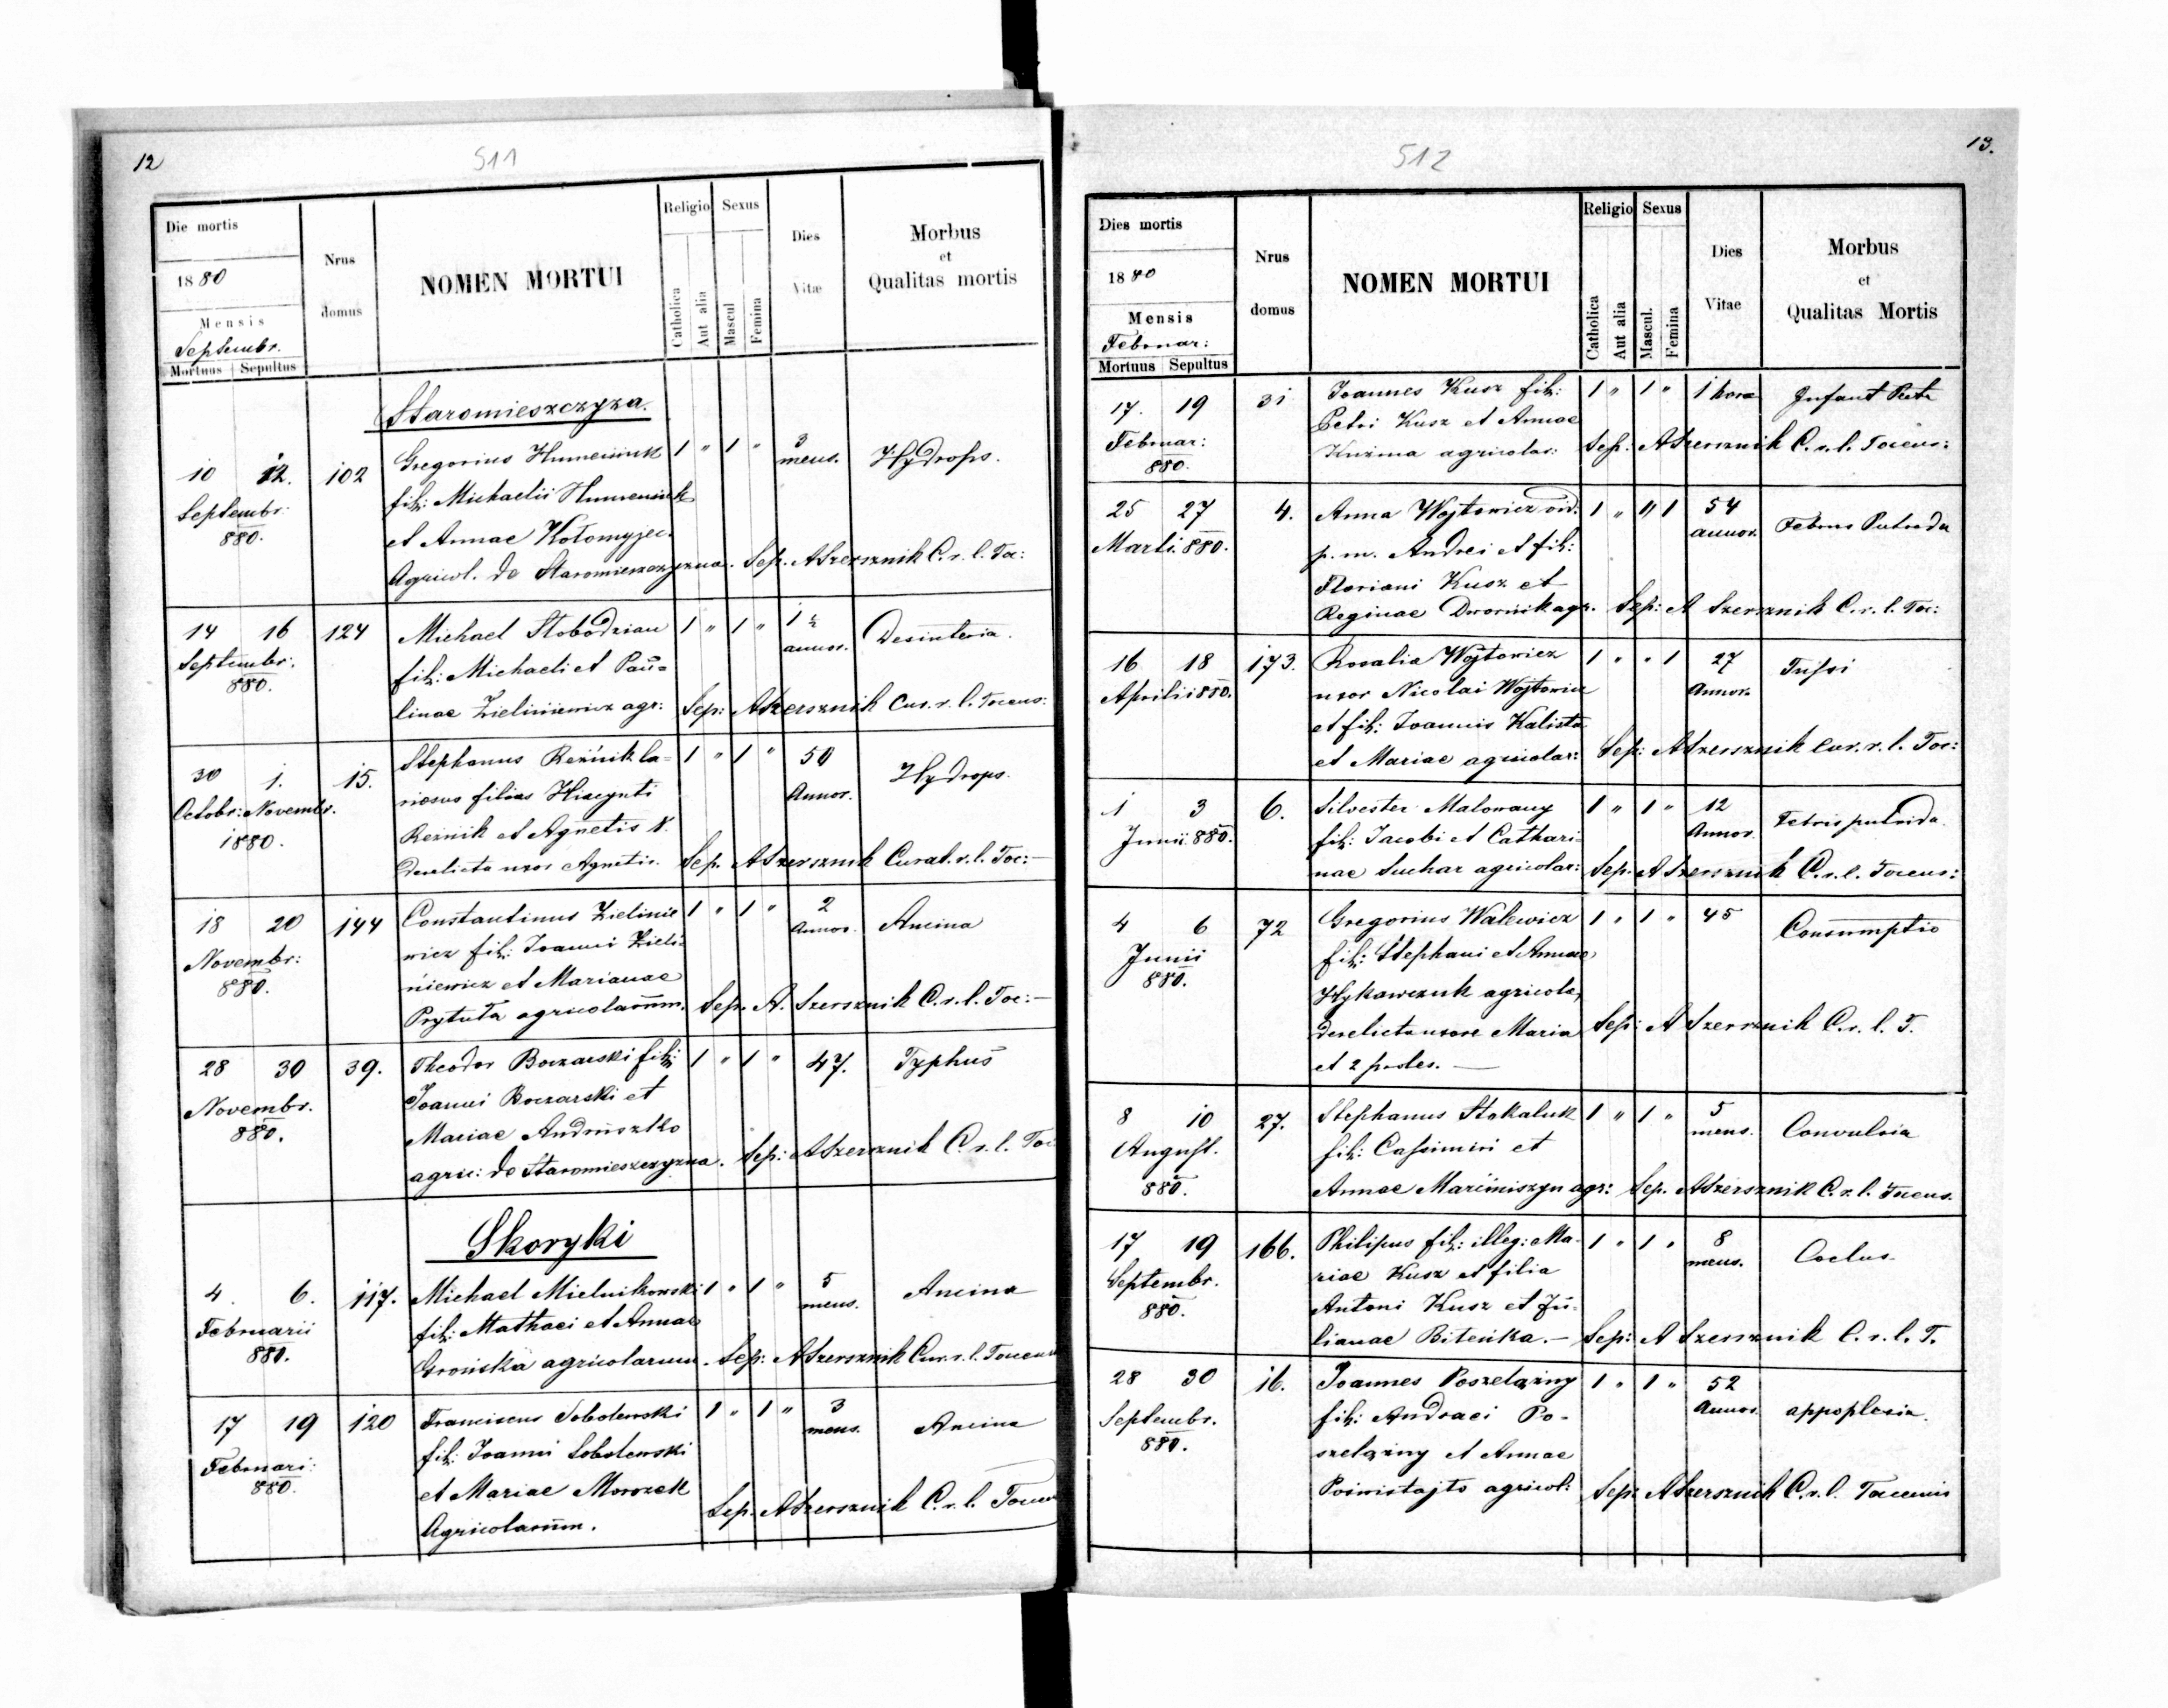 12
511
Die mortis
1880
Mensis
Septembr.
Mortuus Sepultus
Nrus
domus
NOMEN MORTUI
Religio
Catholica
Aut alia
Sexus
Mascul
Femina
Dies
Vitæ
Morbus
et
Qualitas mortis
Staromieszczyzna.
10 12. 102 Gregorius Humeniuk 1 " 1 " 3 mens. Hydrops.
Septembr: 880. fil: Michaelii Humeniuk
et Annae Kołomyjec.
Agricol. de Staromieszczyzna. Sep. A Szersznik C. r. l. Toc:
14 16 124 Michael Słobodzian 1 " 1 " 1 ½ annor. Desinteria.
Septembr. 880. fil: Michaeli et Pau=
linae Zieliniewicz agr: Sep: A Szersznik Cur. r. l. Tocens:
30 1. 15. Stephanus Reźnik la= 1 " 1 " 50 Annor. Hydrops.
Octobr: Novembr. 1880. filius Hiacynti
Reznik et Agnetis N.
Derelicta uxor Agnetis. Sep. A Szersznik Curat. r. l. Toc:—
18 20 144 Constantinus Zielinie 1 " 1 " 2 Annor. Ancina
Novembr: 880. wicz fil: Joanni Zieli=
niewicz et Marianae
Prytuła agricolarum. Sep. A. Szersznik C. r. l. Toc:—
28 30 39. Theodor Boczarski fil: 1 " 1 " 47. Typhus
Novembr. 880. Joanni Boczarski et
Mariae Andruszko
agric: de Staromieszczyzna. Sep: A Szersznik C. r. l. Toc
Skoryki
4. 6. 117. Michael Mielnikowski 1 " 1 " 5 mens. Ancina
Februarii 880. fil: Mathaei et Annae
Grońska agricolarum. Sep: A Szersznik Cur. r. l. Tocens
17 19 120 Franciscus Sobolewski 1 " 1 " 3 mens. Ancina
Februari: 880. fil: Joanni Sobolewski
et Mariae Mrozek
Agricolarum. Sep. A Szersznik C. r. l. Tocen
13.
512
Dies mortis
1880
Mensis
Februar:
Mortuus Sepultus
Nrus
domus
NOMEN MORTUI
Religio
Catholica
Aut alia
Sexus
Mascul.
Femina
Dies
Vitae
Morbus
et
Qualitas Mortis
17. 19 31 Joannes Kusz fil: 1 " 1 " 1 hora Infant
Februar: 880. Petri Kusz et Annae
Kuźma agricolar: Sep: A Szersznik C. r. l. Tocens:
25 27 4. Anna Wojtowicz vid. 1 " " 1 54 annor. Febris Putrida
Marti. 880. p. m. Andrei et fil:
Floriani Kusz et
Reginae Dwornik agr. Sep: A Szersznik C. r. l. Toc:
16 18 173. Rosalia Wojtowicz 1 " " 1 27 Annor.
Aprilii 880. uxor Nicolai Wojtowicz
et fil: Joannis Kalista
et Mariae agricolar: Sep: A Szersznik Cur. r. l. Toc:
1 3 6. Silvester Malowany 1 " 1 " 12 Annor. Febris putrida.
Junii 880. fil: Jacobi et Cathari=
nae Suchar agricolar: Sep. A Szersznik C. r. l. Tocens:
4 6 72 Gregorius Walewicz 1 " 1 " 45 Consumptio
Junii 880. fil: Stephani et Annae
Hykawczuk agricola,
derelicta uxore Maria Sep: A Szersznik C. r. l. T.
et 2 proles. —
8 10 27. Stephanus Stokaluk 1 " 1 " 5 mens. Convulsia
August. 880. fil: Cassimiri et
Annae Marciniszyn agr: Sep. A Szersznik C. r. l. Tocens.
17 19 166. Philipus fil: illeg: Ma= 1 " 1 " 8 mens. Coclus
Septembr. 880. riae Kusz et filia
Antoni Kusz et Ju=
lianae Biteńka.— Sep: A Szersznik C. r. l. T.
28 30 16. Joannes Poszelązny 1 " 1 " 52 Annor. appoplexia.
Septembr. 880. fil: Andraei Po=
szelązny et Annae
agricol: Sep: A Szersznik C. r. l. Tocensis